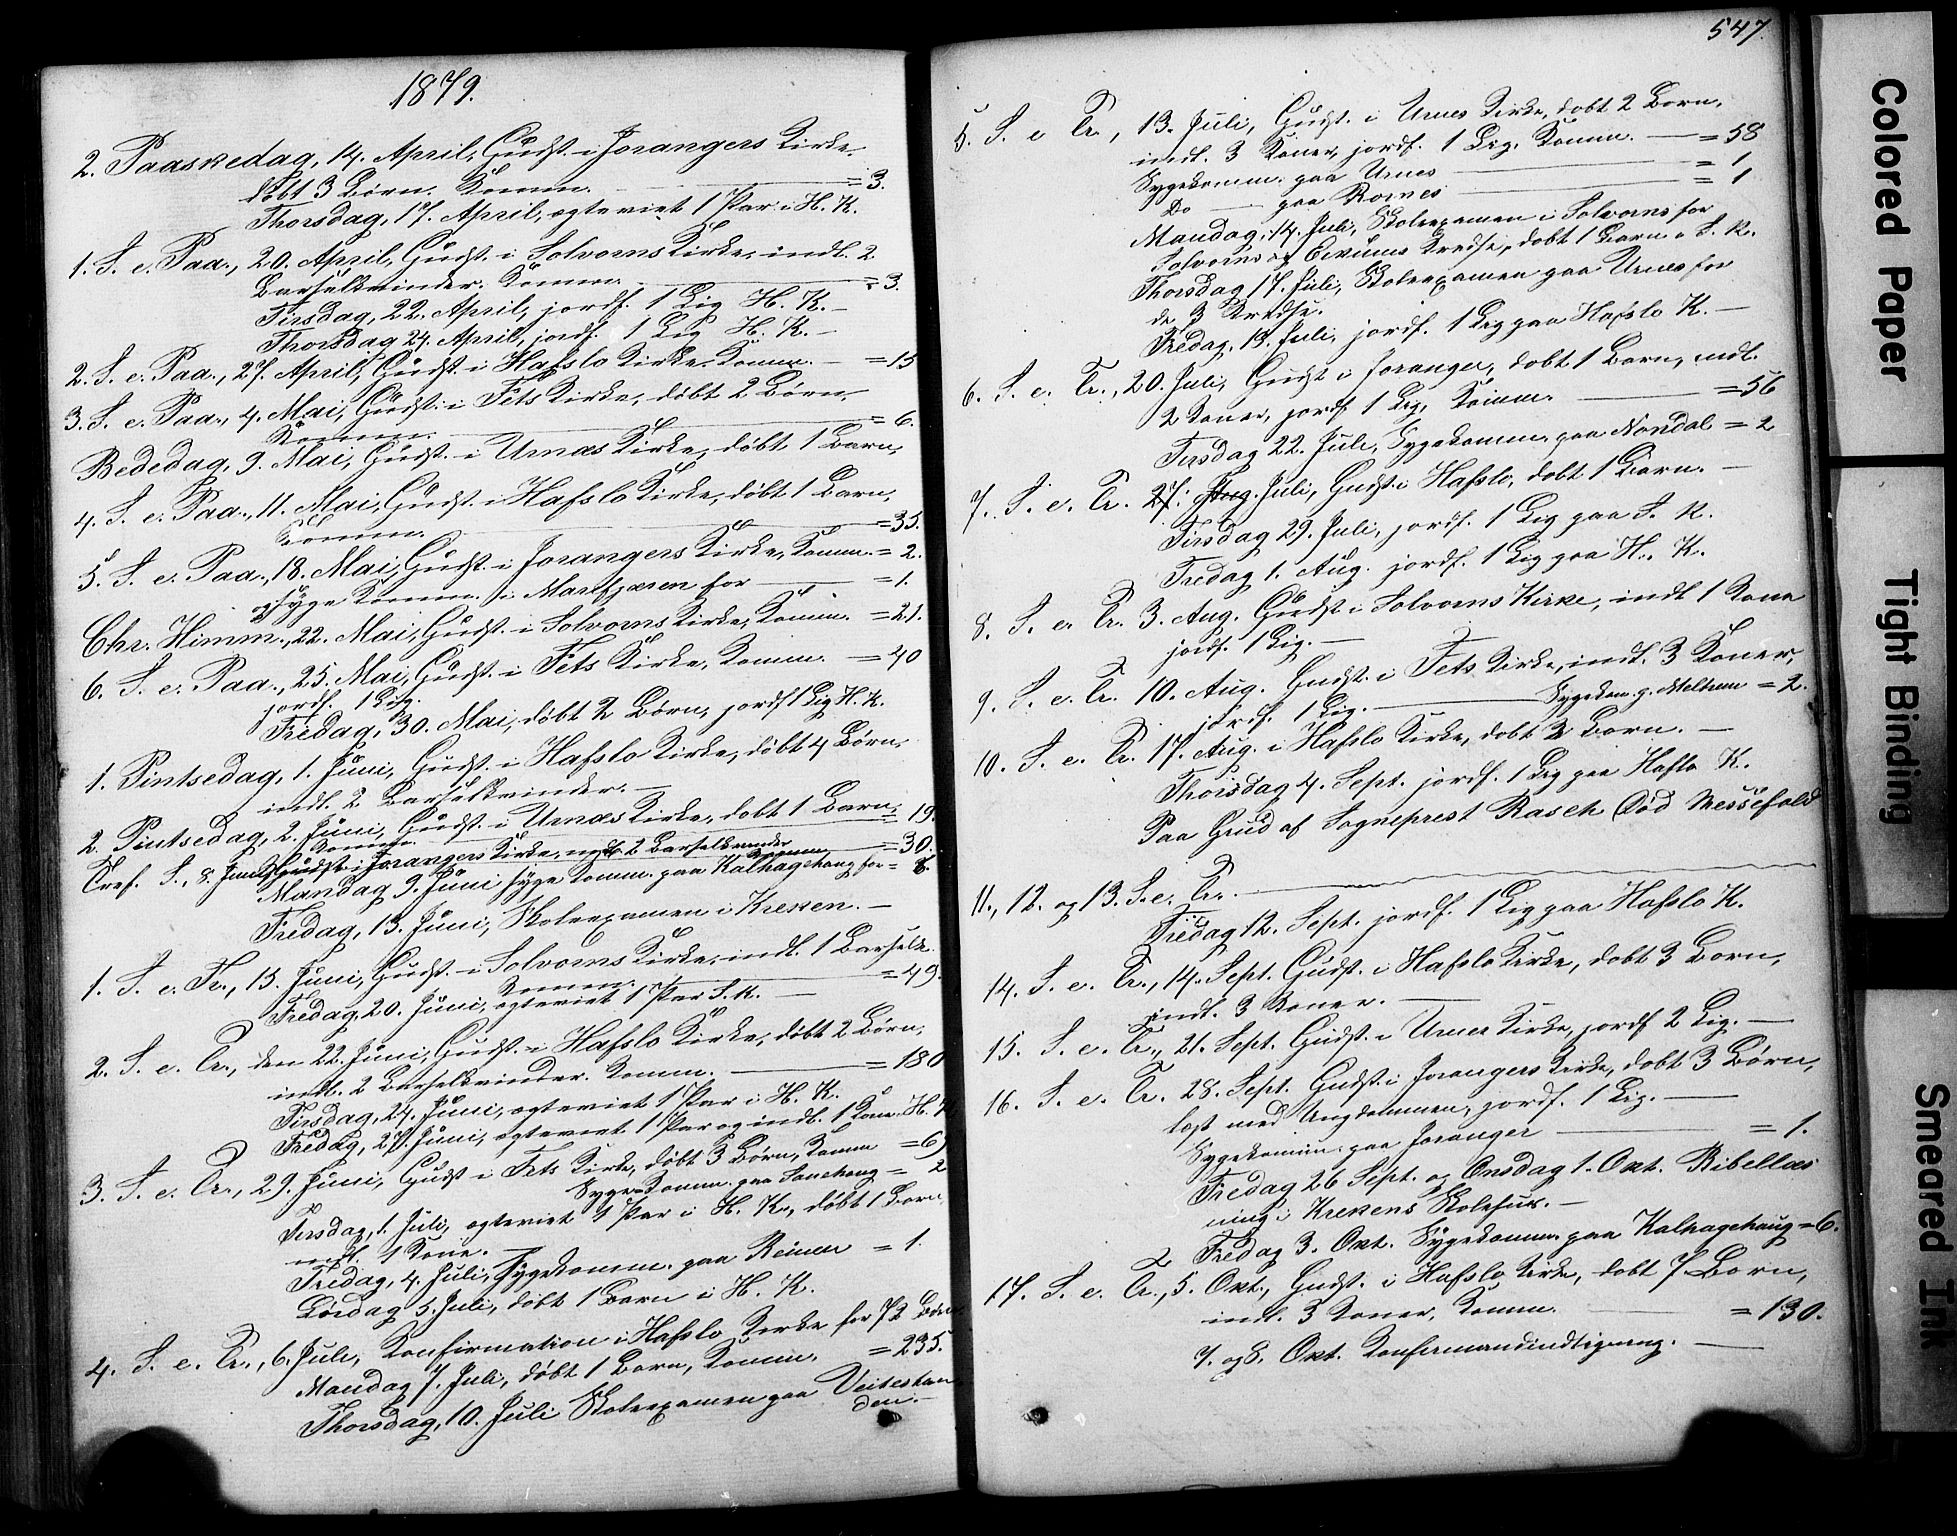 1879.
2. Paaskedag, 14. April, Gudst. i Joranger Kirke.
døbt 3 Børn. Komm. = 3.
Thorsdag, 17. April, ægteviet 1 Par i H. K.
1. S. e. Paa., 20. April, Gudst. i Solvorns Kirke, indl. 2
Barselkvinder. Komm. = 3.
Tirsdag, 22. April, jordf. 1 Lig H. K. –
Thorsdag 24. April, jordf. 1 Lig H. K. –
2. S. e. Paa., 27. April, Gudst. i Hafslo Kirke. Komm. – = 15
3. S. e. Paa., 4. Mai, Gudst. i Fets Kirke, døbt 2 Børn,
Komm. = 6.
Bededag, 9. Mai, Gudst. i Urnæs Kirke, døbt 1 Barn,
4. S. e. Paa., 11. Mai, Gudst. i Hafslo Kirke, døbt 1 Barn,
Komm. = 35.
5. S. e. Paa., 18. Mai, Gudst. i Jorangers Kirke, Komm. = 2.
og Syge Komm. i Marifjæren for = 1.
Chr. Himm., 22. Mai, Gudst. i Solvorns Kirke, Komm. = 21.
6. S. e. Paa., 25. Mai, Gudst. i Fets Kirke, Komm. = 40
jordf. 1 Lig.
Fredag, 30. Mai, døbt 2 Børn, jordf 1 Lig H. K.
1. Pintsedag, 1. Juni, Gudst. i Hafslo Kirke, døbt 4 Børn,
indl. 2 Barselkvinder. –
2. Pintsedag, 2. Juni, Gudst. i Urnæs Kirke, døbt 1 Barn,
Komm. = 19.
Tref. S., 8. Juni, Gudst. i Jorangers Kirke, indl. 2 Barselkvinder
Komm. = 30.
Mandag 9. Juni Syge Komm. paa Kalhagehaug for = 8.
Fredag, 13. Juni, Skoleexamen i Kreken. –
1. S. e. Tr., 15. Juni, Gudst. i Solvorns Kirke, indl. 1 Barselk.
Komm. = 49.
Fredag, 20. Juni, ægteviet 1 Par S. K. –
2. S. e. Tr., den 22. Juni, Gudst. i Hafslo Kirke, døbt 2 Børn,
indl. 2 Barselkvinder. Komm. = 180
Tirsdag, 24. Juni, ægteviet 1 Par i H. K.
Fredag, 27. Juni, ægteviet 1 Par og indl. 1 Kone H. K
3. S. e. Tr., 29. Juni, Gudst. i Fets Kirke, døbt 3 Børn, Komm = 69
Syge Komm. paa = 2
Tirsdag, 1. Juli, ægteviet 1 Par i H. K., døbt 1 Barn
indl. 1 Kone. –
Fredag, 4. Juli, Sygekomm. paa = 1.
Lørdag 5. Juli, døbt 1 Barn i H. K.
4. S. e. Tr., 6. Juli, Konfirmation i Hafslo Kirke for 72 Børn
Mandag 7. Juli, døbt 1 Barn, Komm. = 235.
Thorsdag, 10. Juli Skoleexamen paa Veitestran
den. –
547.
5. S. e Tr., 13. Juli, Gudst. i Urnes Kirke, døbt 2 Børn,
indl. 3 Koner, jordf. 1 Lig. Komm. – = 58
Sygekomm. paa Urnes = 1
Do – paa = 1
Mandag, 14. Juli, Skoleexamen i Solvorns for
Solvorns og Kredse, døbt 1 Barn i S. K.
Thorsdag 17. Juli, Skoleexamen paa Urnes for
de 3 Kredse.
Fredag, 18. Juli, jordf. 1 Lig paa Hafslo K. –
6. S. e. Tr., 20. Juli, Gudst i Joranger, døbt 1 Barn, indl.
2 Koner, jordf 1 Lig, Komm. = 56
Tirsdag 22. Juli, Sygekomm. paa Nondal = 2
7. S. e. Tr. 27. Aug. Juli, Gudst. i Hafslo, døbt 1 Barn. –
Tirsdag 29. Juli, jordf. 1 Lig paa S. K.
Fredag 1. Aug. jordf. 1 Lig paa H. K.
8. S. e. Tr. 3. Aug. Gudst. i Solvorns Kirke, indl 1 Kone
jordf. 1 Lig. –
9. S. e. Tr. 10. Aug. Gudst. i Fets Kirke, indl. 3 Koner,
jordf. 1 Lig. – Sygekom. p. Melheim = 2.
10. S. e. Tr. 17. Aug. i Hafslo Kirke, døbt 2 Børn. –
Thorsdag 4. Sept. jordf. 1 Lig paa Hafslo K.
Paa Grund af Sogneprest Rasch Død Messefald
11., 12. og 13. S. e. Tr.
Fredag 12. Sept. jordf. 1 Lig paa Hafslo K.
14. S. e. Tr., 14. Sept. Gudst. i Hafslo Kirke, døbt 3 Børn,
indl. 3 Koner. –
15. S. e. Tr., 21. Sept. Gudst. i Urnes Kirke, jordf 2 Lig. –
16. S. e. Tr. 28. Sept. Gudst. i Jorangers Kirke, døbt 3 Børn,
læst med Ungdommen, jordf. 1 Lig. –
Sygekomm. paa Joranger = 1.
Fredag 26 Sept. og Onsdag 1. Okt. Bibellæs
ning i Krekens Skolehus. –
Fredag 3. Okt. Sygekomm. paa Kalhagehaug = 6.
17. S. e. Tr., 5. Okt., Gudst. i Hafslo Kirke, døbt 7 Børn,
indl. 3 Koner, Komm. = 130.
7. og 8. Okt. Konfirmandindtegning. –
Colored Paper
Tight Binding
Smeared Ink